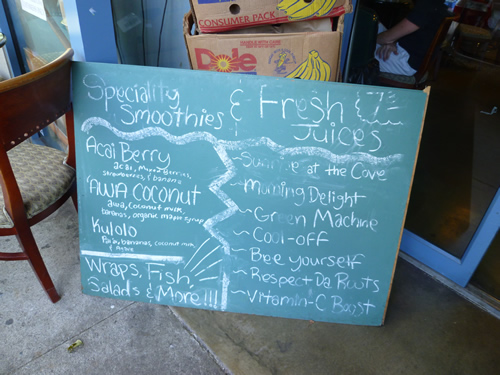 CONSUMER PACK
Dole
Speciality
Smoothies
& Fresh
Juices
Acai Berry
acai, mixed berries,
strawberries, & banana
'AWA COCONUT
awa, coconut milk,
bananas, organic maple syrup
Kulolo
bananas, coconut milk,
& Agave
Wraps, Fish,
Salads & More!!!
~Sunrise at the Cove
~Morning Delight
~Green Machine
~Cool-off
~Bee yourself
~Respect Da Roots
~Vitamin-C Boost